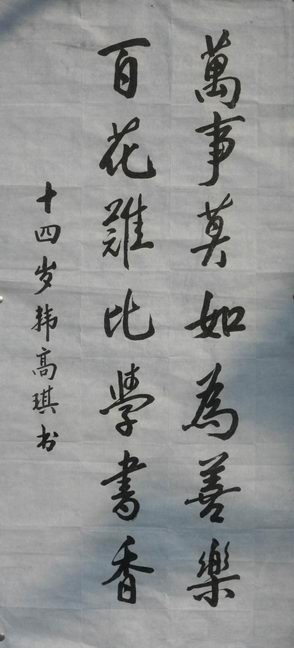 萬事莫如為善樂
百花難比學書香
十四岁韩高琪书